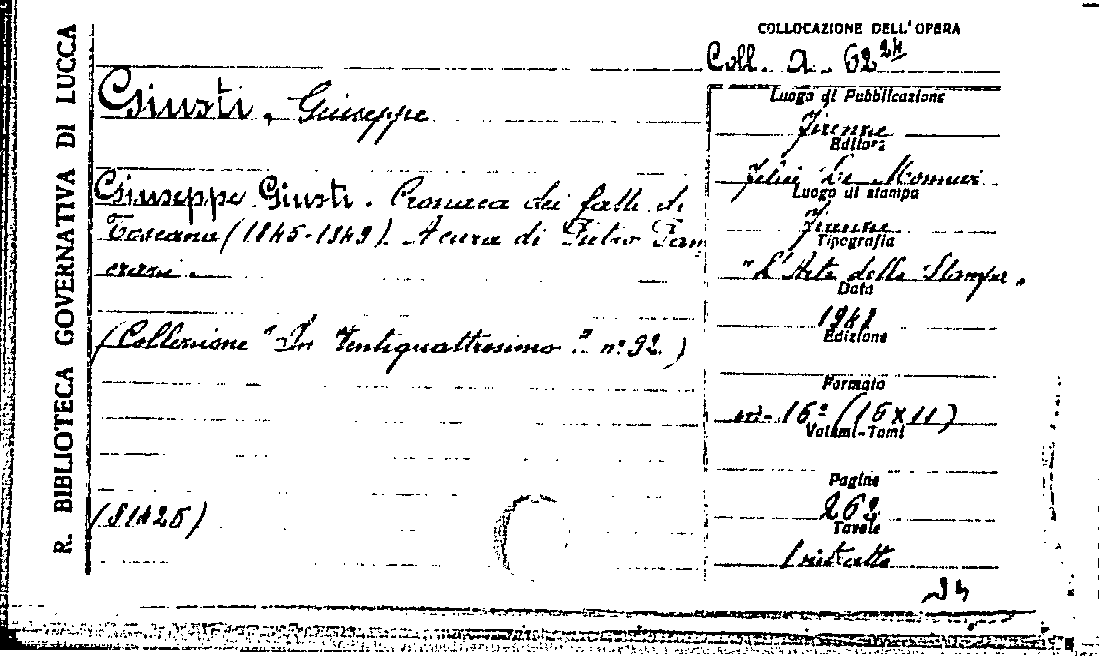 R. BIBLIOTECA GOVERNATIVA DI LUCCA
COLLOCAZIONE DELL'OPERA
Coll. A. 62 24
Giusti, Giuseppe
Giuseppe Giusti. Cronaca dei fatti di
Toscana (1845-1849). A cura di Pietro Pan
crazi.
(Collezione "In Ventiquattresimo" n° 92.)
(81426)
Luogo di Pubblicazione
Firenze
Editore
Felice Le Monnier
Luogo di stampa
Firenze
Tipografia
"L'Arte della Stampa"
Data
1948
Edizione
Formato
16° (16x11)
Volumi-Tomi
Pagine
262
Tavole
1 ritratto